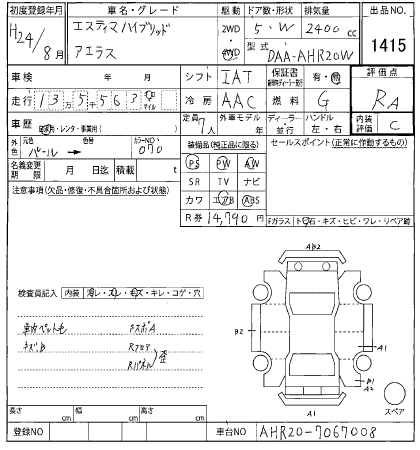 初度登録年月
車名・グレード
駆動
ドア数・形状
排気量
出品NO.
H24/8月
エスティマハイブリッド
アエラス
2WD
・
4WD
5・W
2400cc
型式
DAA-AHR20W
1415
車検
年
月
シフト
IAT
保証書
有・無
評価点
RA
走行
135563
キロ
マイル
冷房
AAC
燃料
G
車歴
自家用・レンタ・事業用(
)
定員
7人
外車モデル
年
ディーラー
・
並行
ハンドル
左・右
内装
評価
C
外色
元色
色替
パール→
カラーNO
070
名義変更
期限
月
日迄
積載
t
装備品(純正品に限る)
PS
PW
AW
SR
TV
ナビ
カワ
エアB
ABS
R券
14,790円
セールスポイント(正常に作動するもの)
注意事項(欠品・修復・不具合箇所および状態)
Fガラス
トビ石・キズ・ヒビ・ワレ・リペア跡
検査員記入
内装
汚レ・スレ・キズ・キレ・コゲ・穴
車内ペット毛
キズB
Rフロア
Rパネル
歪
AB2
B2
A1
B1
A2
A1
スペア
長さ
cm
幅
cm
高さ
cm
登録NO
車台NO
AHR20-7067008